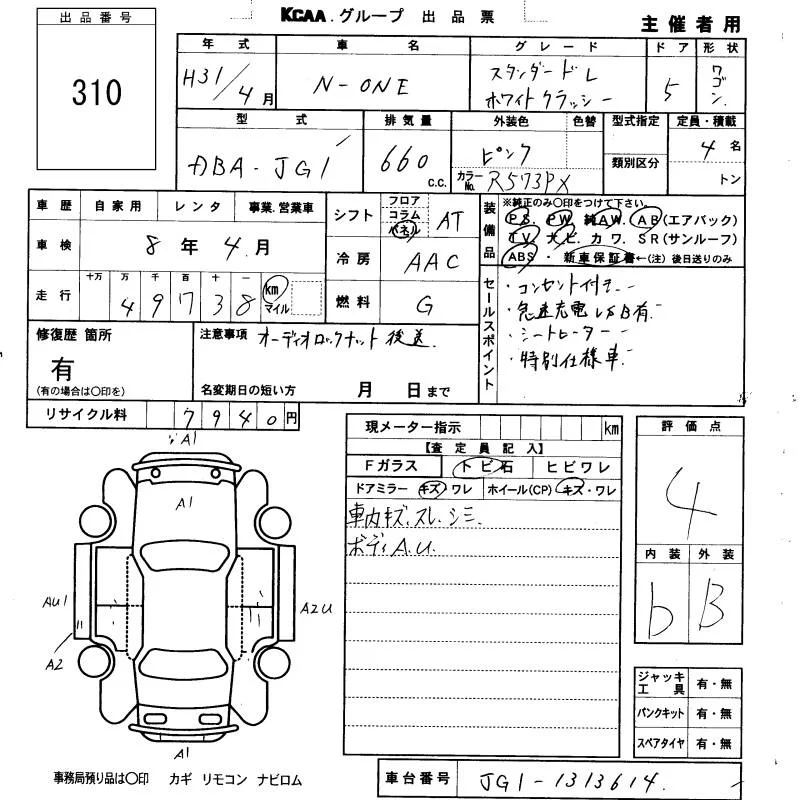 出品番号
310
KCAA.グループ 出品票
主催者用
年式 車名 グレード ドア 形状
H31/4月 N-ONE スタンダードL ホワイトクラッシー 5 ワゴン
型式 排気量 外装色 色替 型式指定 定員・積載
DBA-JG1 660 c.c. ピンク 4名
カラーNo. R573PX 類別区分 トン
車歴 自家用 レンタ 事業.営業車
車検 8年 4月
走行 十万 万 千 百 十 一
4 9 1 7 3 8 km マイル
シフト フロア コラム パネル AT
冷房 AAC
燃料 G
装備品 ※純正のみ○印をつけて下さい。
PS. PW. 純AW. AB(エアバック)
TV. ナビ. カワ. SR(サンルーフ)
ABS・新車保証書←(注)後日送りのみ
セールスポイント
・コンセント付き
・急速充電USB有
・シートヒーター
・特別仕様車
修復歴 箇所
有
(有の場合は○印を)
注意事項 オーディオロックナット後送.
名変期日の短い方 月 日まで
リサイクル料 7940円
現メーター指示 km
【査定員記入】
Fガラス トビ石 ヒビワレ
ドアミラー キズ・ワレ ホイール(CP) キズ・ワレ
車内キズ.スレ.シミ.
ボディA.U.
評価点
4
内装 外装
b B
A1
A1
AU1
A2U
A2
A1
ジャッキ工具 有・無
パンクキット 有・無
スペアタイヤ 有・無
事務局預り品は○印 カギ リモコン ナビロム
車台番号 JG1-1313614.